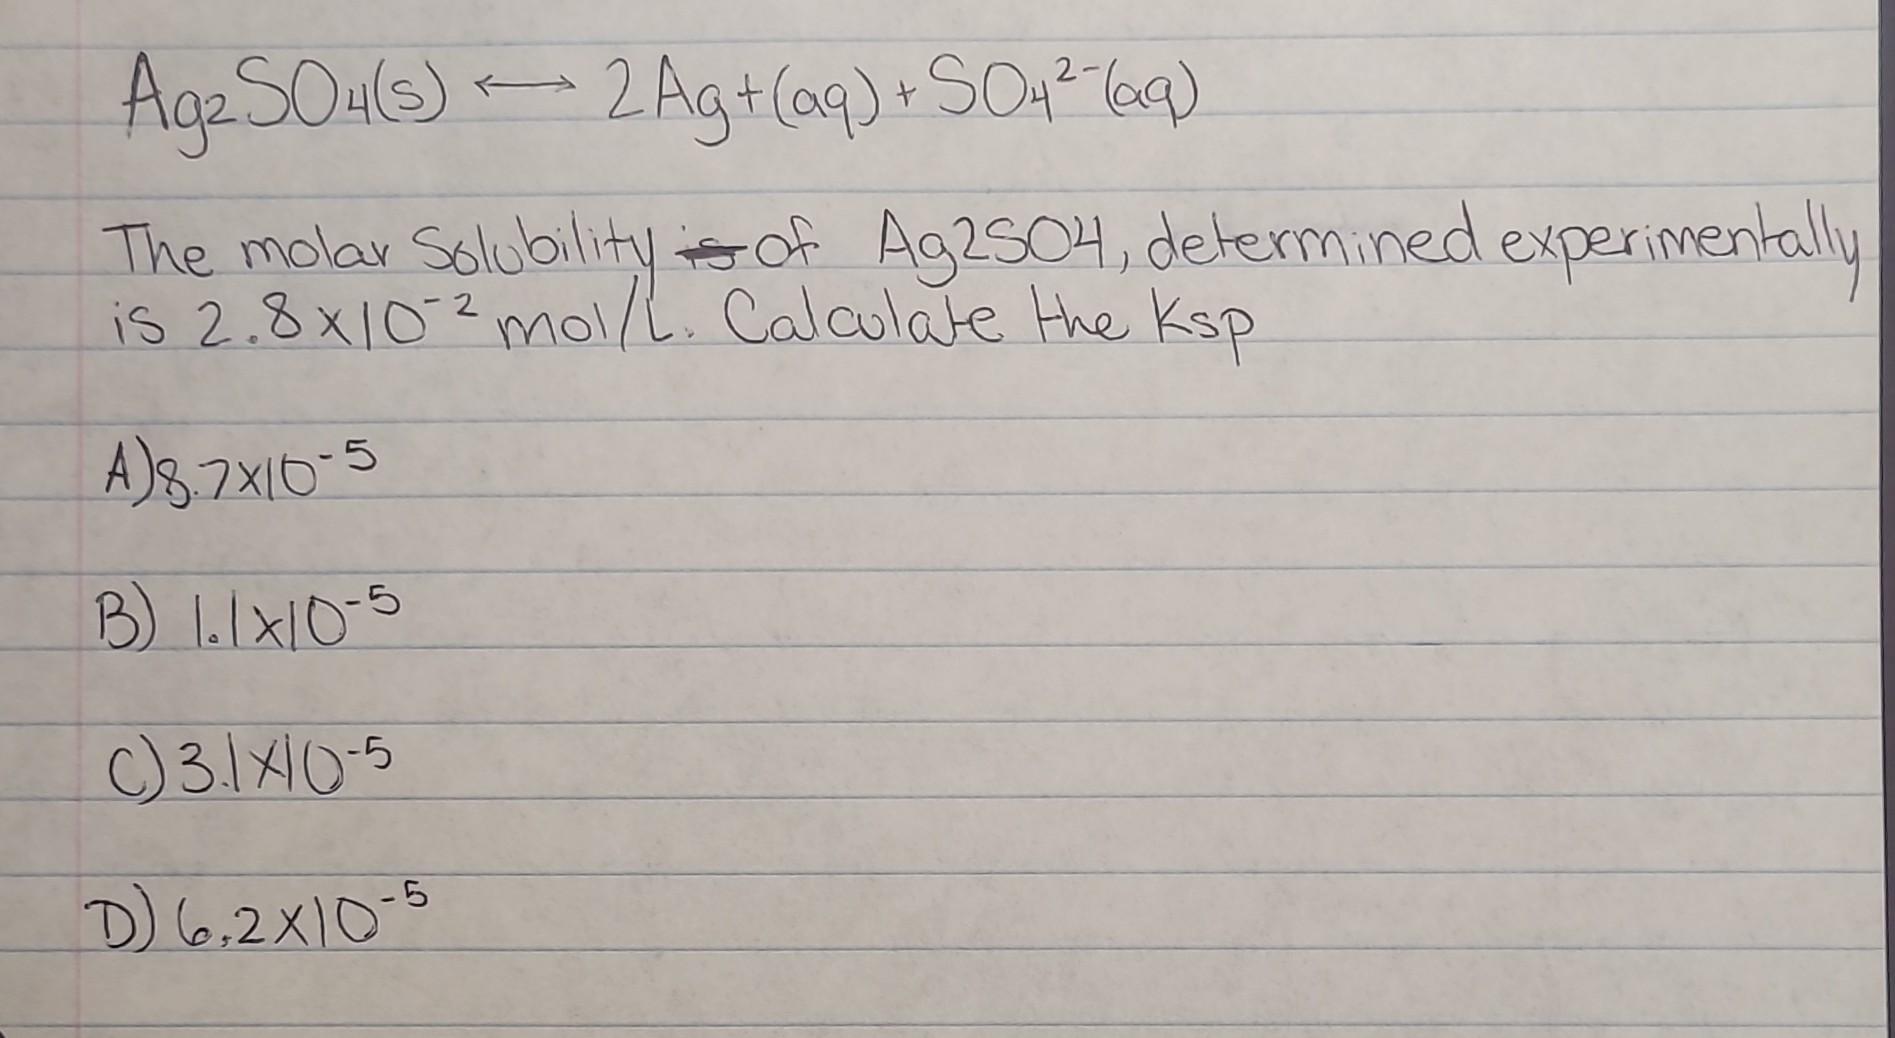 Ag2SO4(s) ⟷ 2Ag+(aq) + SO4²⁻(aq)
The molar Solubility is of Ag2SO4, determined experimentally
is 2.8x10⁻² mol/L. Calculate the Ksp
A) 8.7x10⁻⁵
B) 1.1x10⁻⁵
C) 3.1x10⁻⁵
D) 6.2x10⁻⁵